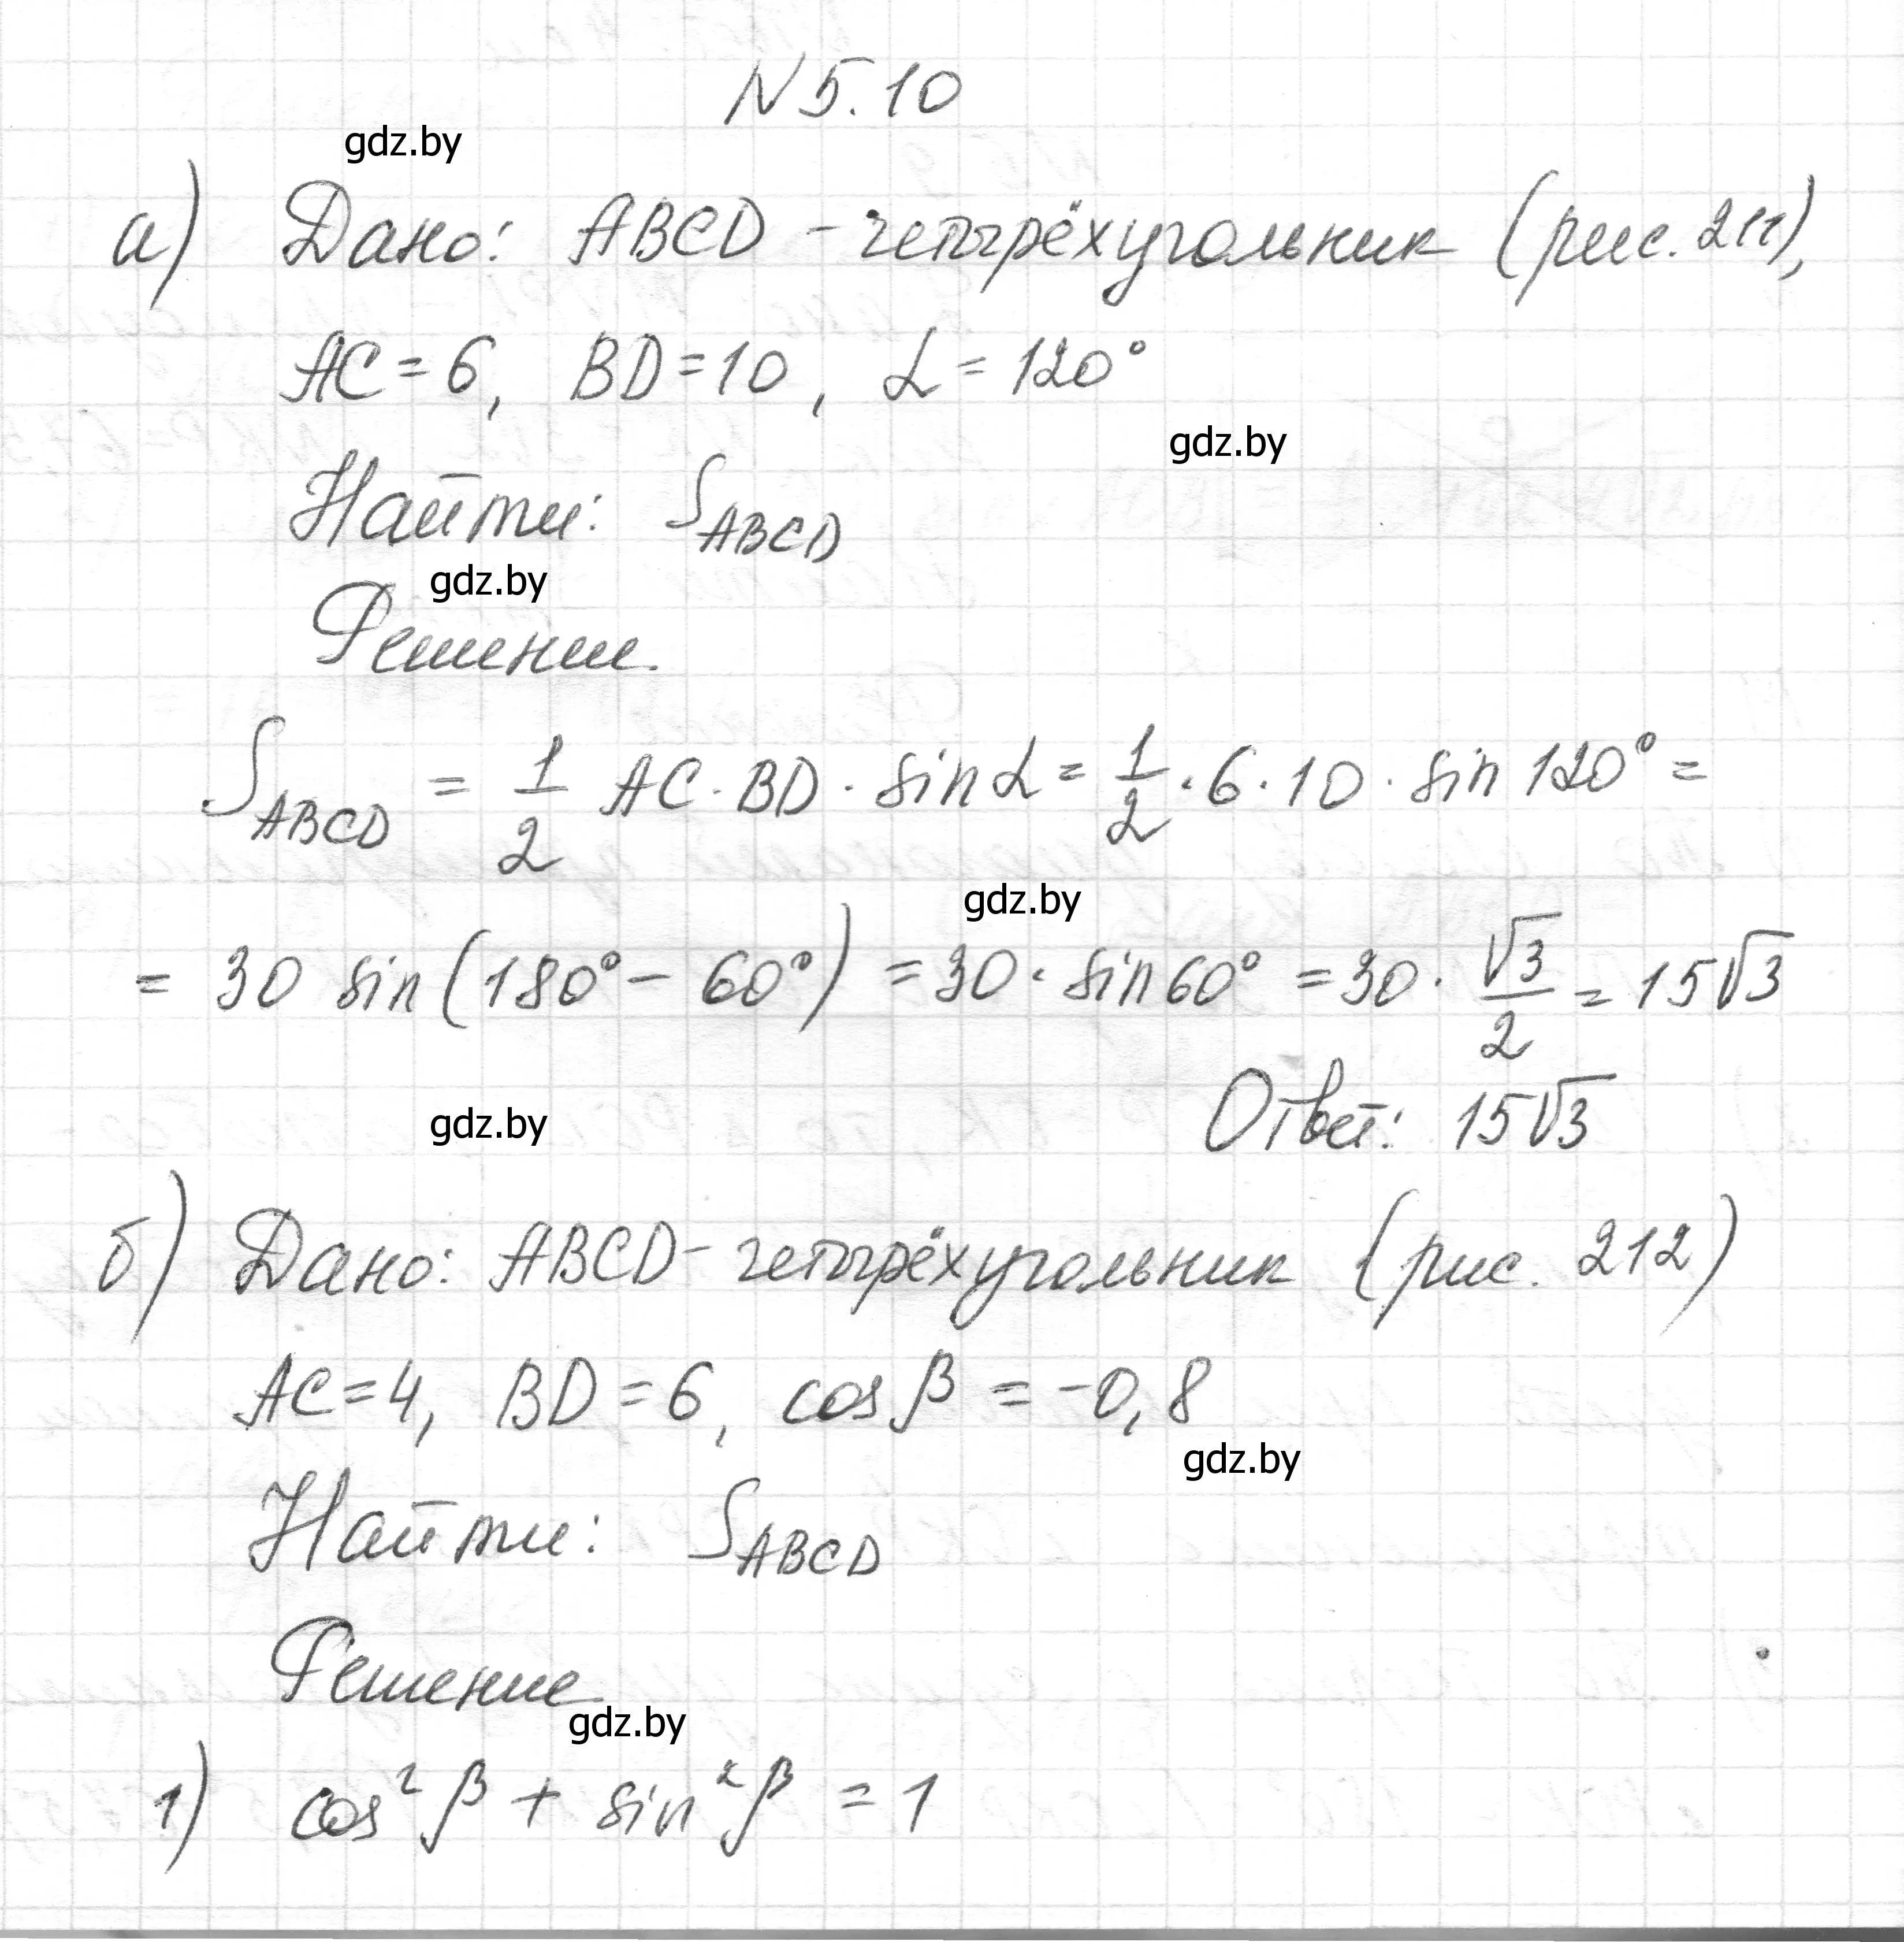 N 5.10
gdz.by
а) Дано: ABCD - четырёхугольник (рис. 211),
AC = 6, BD = 10, α = 120°
gdz.by
Найти: S_ABCD
gdz.by
Решение.
S_ABCD = 1/2 AC · BD · sin α = 1/2 · 6 · 10 · sin 120° =
gdz.by
= 30 sin (180° - 60°) = 30 · sin 60° = 30 · √3/2 = 15√3
Ответ: 15√3
gdz.by
б) Дано: ABCD - четырёхугольник (рис. 212)
AC = 4, BD = 6, cos β = -0,8
gdz.by
Найти: S_ABCD
Решение
gdz.by
1) cos² β + sin² β = 1